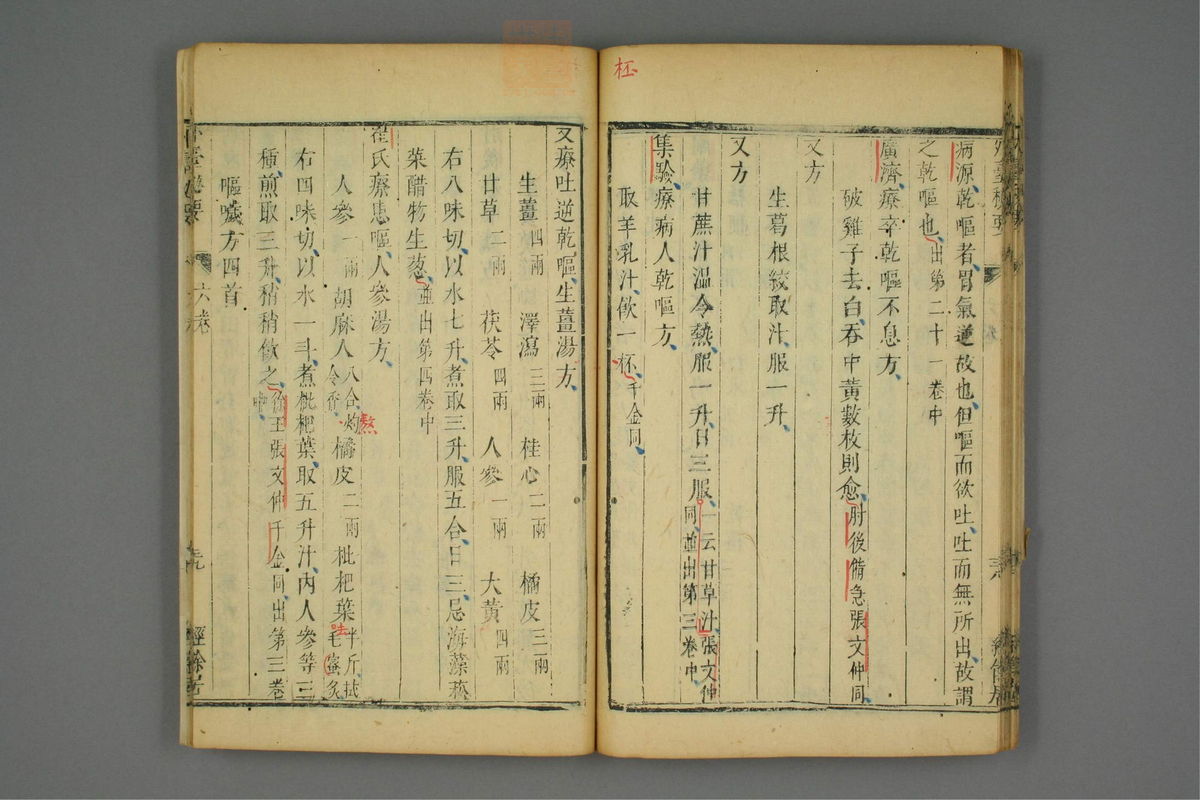 杯
病源乾嘔者胃氣逆故也但嘔而欲吐吐而無所出故謂
之乾嘔也出第二十一卷中
廣濟療卒乾嘔不息方
破雞子去白吞中黃數枚則愈肘後備急張文仲同
又方
生葛根絞取汁服一升
又方
甘蔗汁溫令熱服一升日三服一云甘草汁張文仲同並出第三卷中
集驗療病人乾嘔方
取羊乳汁飲一杯千金同
又療吐逆乾嘔生薑湯方
生薑四兩 澤瀉三兩 桂心二兩 橘皮三兩
甘草二兩 茯苓四兩 人參一兩 大黃四兩
右八味切以水七升煮取三升服五合日三忌海藻菘
菜醋物生葱並出第四卷中
崔氏療患嘔人參湯方
人參一兩 胡麻人八合灼令香 橘皮二兩 枇杷葉半斤拭毛蜜炙
熬
去
右四味切以水一斗煮枇杷葉取五升汁內人參等三
種煎取三升稍稍飲之徐王張文仲千金同出第三卷中
嘔噦方四首
六卷
經餘居